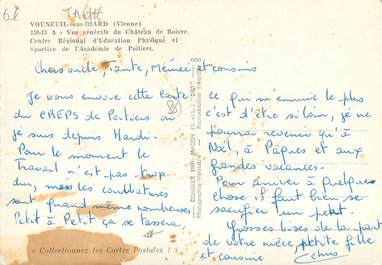 62 TACHE
VOUNEUIL-sous-BIARD (Vienne)
159-15 A - Vue générale du Château de Boivre.
Centre Régional d'Education Physique et
Sportive de l'Académie de Poitiers.
Chers oncle, Tante, Mémée et cousins
Je vous envoie cette carte
du CREPS de Poitiers où
je suis depuis Mardi.
Pour le moment le
Travail n'est pas trop
dur, mais les courbatures
sont quand même nombreuses.
Petit à Petit ça se tassera.
ce qui m'ennuie le plus
c'est d'être si loin, je ne
pourrai revenir qu'à
Noël, à Pâques et aux
grandes vacances.
Pour arriver à quelques
chose il faut bien se
sacrifier un petit.
Grosses bises de la part
de votre nièce, petite fille
et cousine
« Collectionnez les Cartes Postales ! »